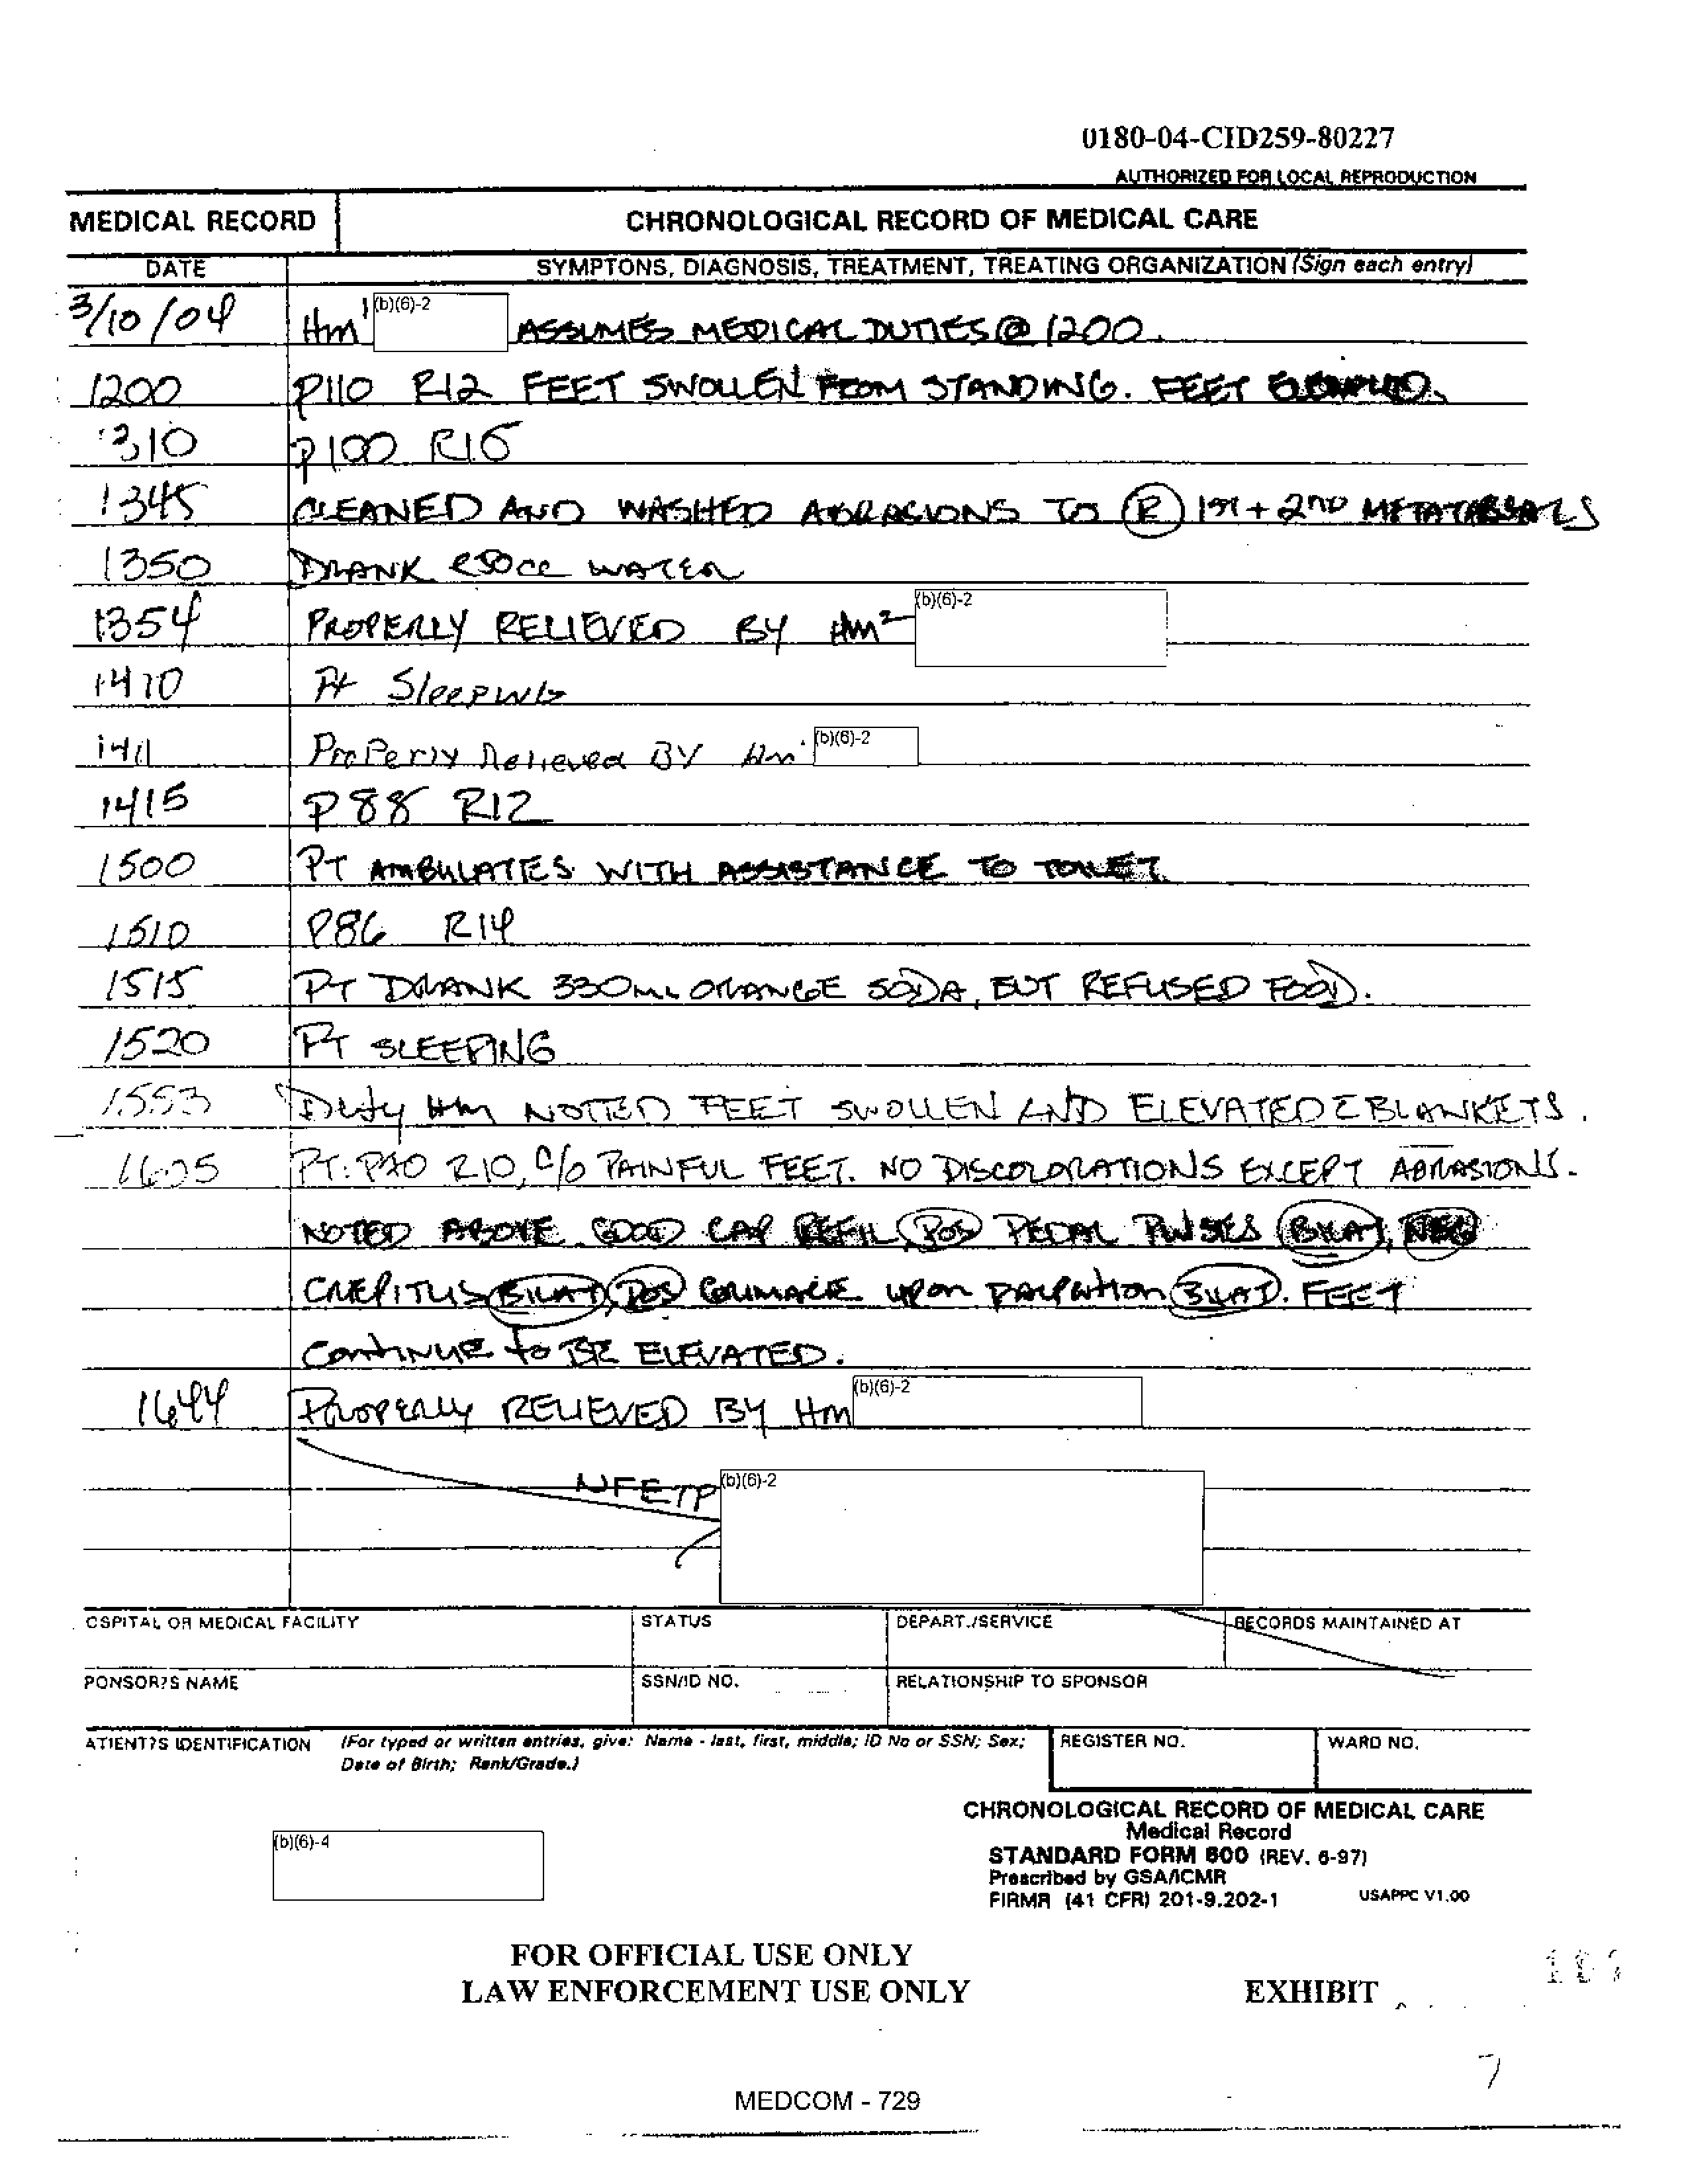 0180-04-CID259-80227
AUTHORIZED FOR LOCAL REPRODUCTION
MEDICAL RECORD CHRONOLOGICAL RECORD OF MEDICAL CARE
DATE SYMPTONS, DIAGNOSIS, TREATMENT, TREATING ORGANIZATION (Sign each entry)
3/10/04 HM1 (b)(6)-2 ASSUMES MEDICAL DUTIES @ 1200.
1200 P110 R12 FEET SWOLLEN FROM STANDING. FEET
1310 P100 R16
1345 CLEANED AND WASHED ABRASIONS TO (R) 1ST + 2ND METATARSALS
1350 DRANK WATER
1354 PROPERLY RELIEVED BY HM2 (b)(6)-2
1410 Pt SleepING
1411 ProPerly Relieved BY Hm (b)(6)-2
1415 P88 R12
1500 PT AMBULATES WITH ASSISTANCE TO TOILET.
1510 P86 R14
1515 PT DRANK 330ML ORANGE SODA, BUT REFUSED FOOD.
1520 PT SLEEPING
1553 Duty HM NOTED FEET SWOLLEN AND ELEVATED BLANKETS.
1605 PT: R10, C/O PAINFUL FEET. NO DISCOLORATIONS EXCEPT ABRASIONS.
NOTED ABOVE. GOOD CAP REFIL, POS PEDAL PULSES BILAT, NEG
CREPITUS BILAT, POS GRIMACE upon palpation BILAT. FEET
CONTINUE to BE ELEVATED.
1644 PROPERLY RELIEVED BY HM (b)(6)-2
NFETP (b)(6)-2
OSPITAL OR MEDICAL FACILITY STATUS DEPART./SERVICE RECORDS MAINTAINED AT
PONSOR?S NAME SSN/ID NO. RELATIONSHIP TO SPONSOR
ATIENT?S IDENTIFICATION (For typed or written entries, give: Name - last, first, middle; ID No or SSN; Sex; REGISTER NO. WARD NO.
Date of Birth; Rank/Grade.)
CHRONOLOGICAL RECORD OF MEDICAL CARE
Medical Record
(b)(6)-4
STANDARD FORM 600 (REV. 6-97)
Prescribed by GSA/ICMR
FIRMR (41 CFR) 201-9.202-1 USAPPC V1.00
FOR OFFICIAL USE ONLY
LAW ENFORCEMENT USE ONLY EXHIBIT
7
MEDCOM - 729